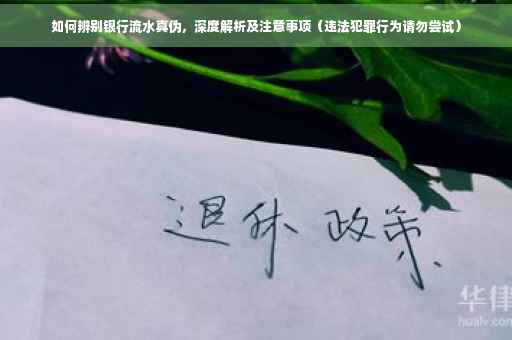 如何辨别银行流水真伪，深度解析及注意事项（违法犯罪行为请勿尝试）
退休 政策
华律
hualv.com